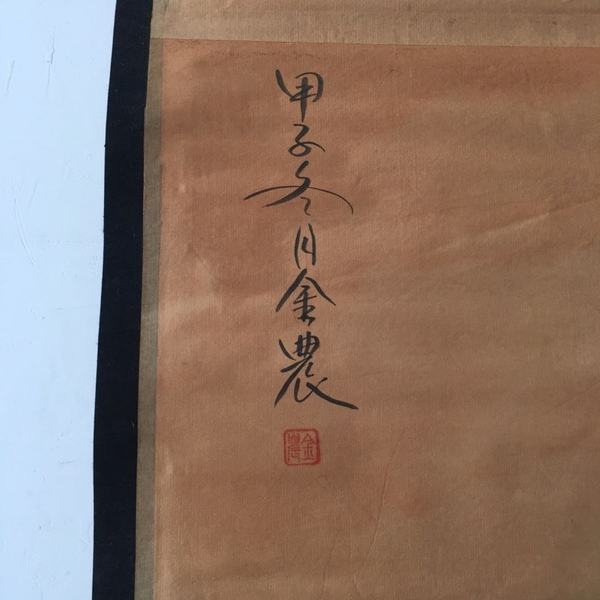 甲子冬月金農
金農